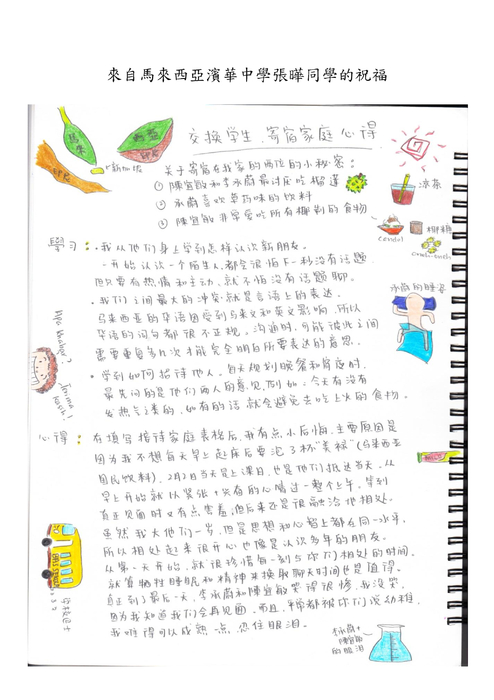 來自馬來西亞濱華中學張曄同學的祝福
交換学生、寄宿家庭 心得
馬來
西亚
新加坡
关于寄宿在我家的两位的小秘密:
① 陳宜敏和李承蔚最讨厌吃榴莲
② 承蔚喜欢草药味的饮料
③ 陳宜敏非常爱吃所有椰制的食物
凉茶
椰糖
cendol
承蔚的睡姿
學习:
• 我从他们身上学到怎样认识新朋友。
一开始认识一个陌生人,都会很怕下一秒没有话题
但只要有热情和主动,就不怕没有话题聊。
• 我们之间最大的冲突就是言语上的表达。
马来西亚的华语因受到马来文和英文影响,所以
华语的词句都很不正规。沟通时,可能彼此之间
需要重复几次才能完全明白所要表达的意思。
• 学到如何招待他人。每天规划晚餐和家庭时,
最先问的是他们两人的意见,例如:今天有没有
发热气之类的,如有的话就会避免去吃上火的食物。
Apa khabar?
Terima kasih!
心得:
在填写接待家庭表格后,我有点小后悔,主要原因是
因为我不想每天早上起床后要泡了杯"美禄"(马来西亚
国民饮料)。2月2日当天是上课日,也是他们抵达当天。从
早上开始就以紧张+兴奋的心喝过一整个上午。等到
真正见面时又有点害羞,但后来还是很融洽他相处。
虽然我大他们一岁,但是思想和心智上都在同一水平,
所以相处起来很开心也像是认识多年的朋友。
从第一天开始,就很珍惜每一刻与你们相处的时间。
就算牺牲睡眠和精神来换取聊天时间也是值得。
直到了最后一天,李承蔚和陳宜敏哭得很惨,我没哭,
因为我知道我们会再见面,而且,平常都被你们说幼稚,
我难得可以成熟一点,忍住眼泪。
学校巴士
李承蔚+
陳宜敏
的眼泪